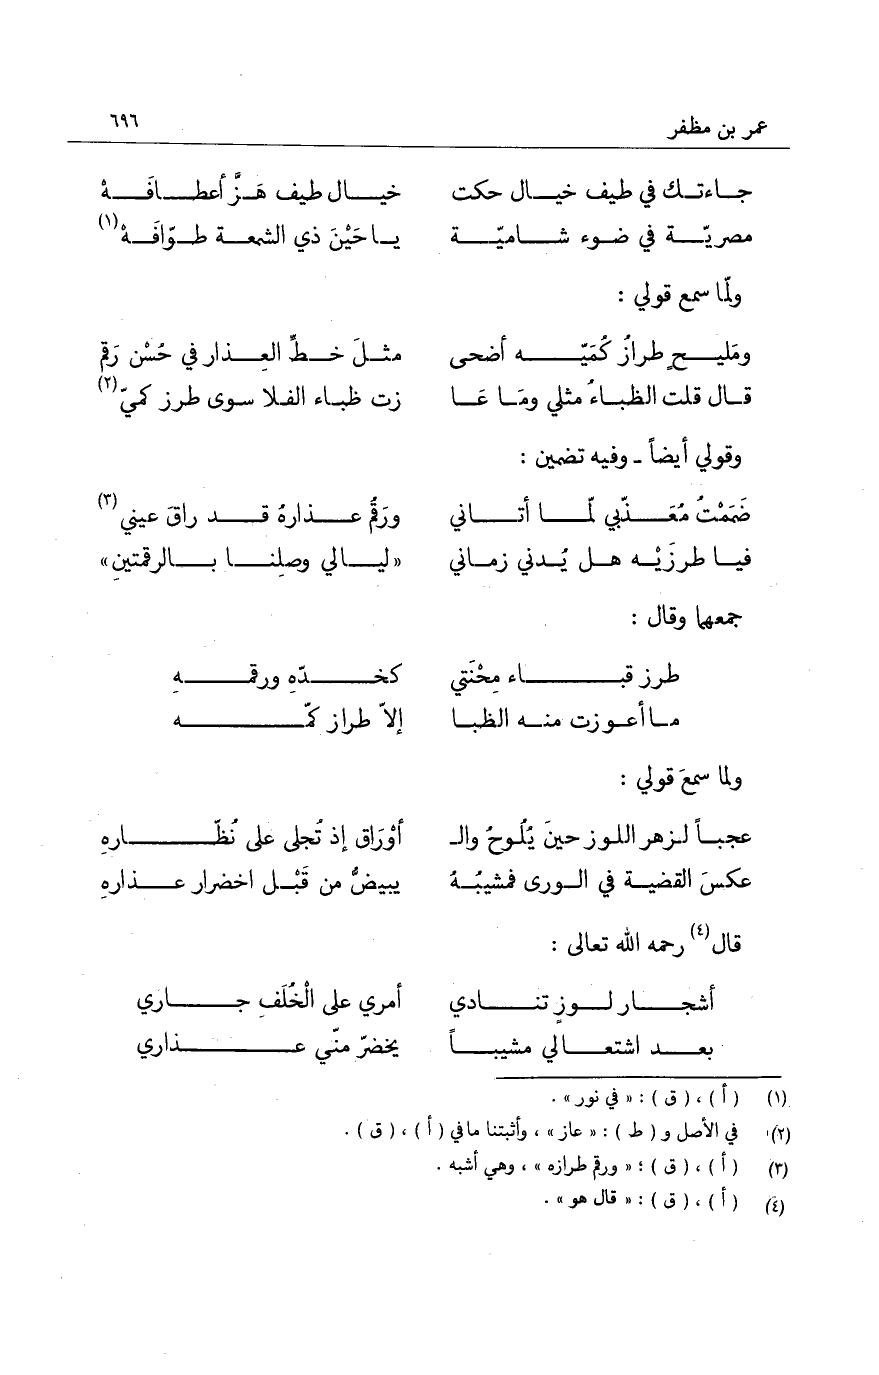 عمر بن مظفر ٦٩٦
جاءتك في طيف خيال حكت خيال طيف هَزَّ أعطافَهْ
مصريّة في ضوء شاميّة يا حَيْنَ ذي الشمعة طوّافَهْ(١)
ولمّا سمع قولي :
ومَليحٍ طرازُ كُمَيّه أضحى مثلَ خطِّ العِذار في حُسْن رَقم
قال قلت الظباءُ مثلي ومَا عَا زت ظباء الفلا سوى طرز كميّ(٢)
وقولي أيضاً ـ وفيه تضمين :
ضَمَمْتُ مُعَذّبي لمّا أتاني ورَقُم عذارهُ قد راقَ عيني(٣)
فيا طرزَيْه هل يُدني زماني «ليالي وصلِنا بالرقمتينِ»
جمعها وقال :
طرز قباء مِحْنَتي كخدّهِ ورقمهِ
ما أعوزت منه الظبا إلاّ طراز كمّه
ولما سمعَ قولي :
عجباً لزهر اللوز حينَ يَلُوحُ والـ أوْرَاق إذ تُجلى على نُظّارهِ
عكسَ القضية في الورى فمشيبُهُ يبيضُّ من قَبْل اخضرار عذارهِ
قال(٤) رحمه الله تعالى :
أشجار لوزٍ تنادي أمري على الْخُلَفِ جاري
بعد اشتعالي مشيباً يخضرّ منّي عذاري
(١) ( أ ) ، ( ق ) : « في نور » .
(٢) في الأصل و ( ط ) : « عاز » ، وأثبتنا ما في ( أ ) ، ( ق ) .
(٣) ( أ ) ، ( ق ) ؛ « ورقم طرازه » ، وهي أشبه .
(٤) ( أ ) ، ( ق ) : « قال هو » .